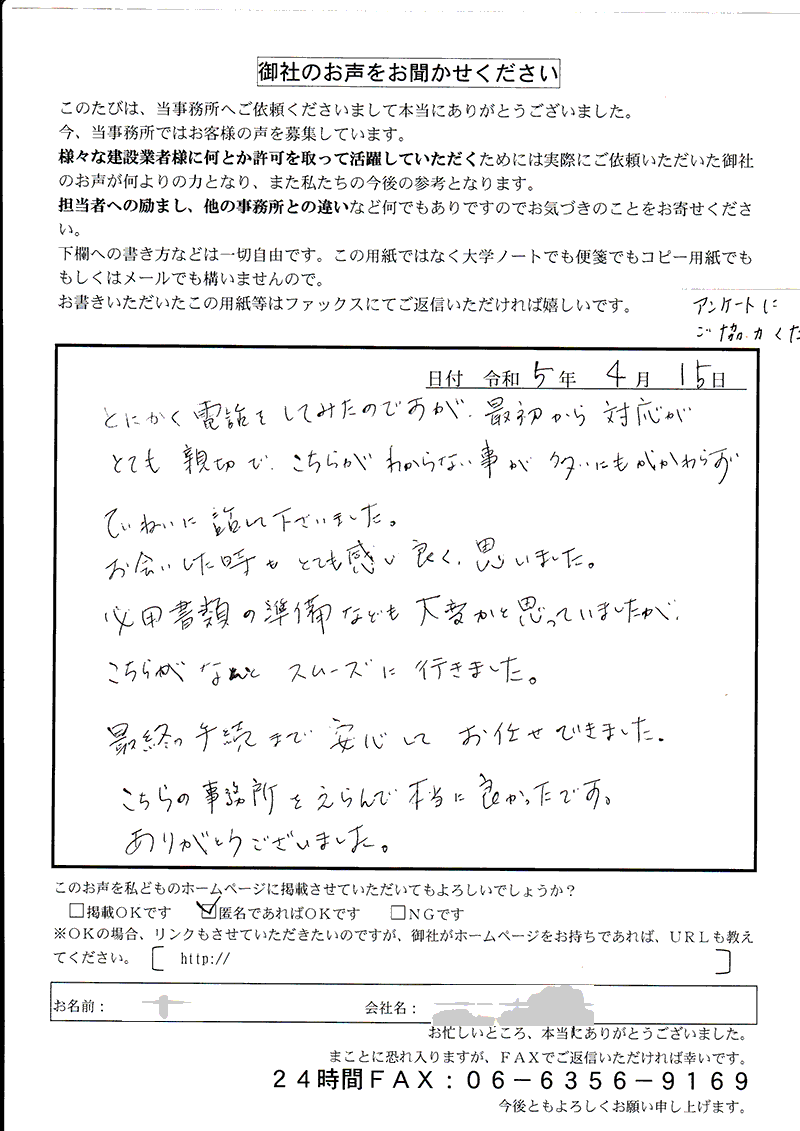 御社のお声をお聞かせください
このたびは、当事務所へご依頼くださいまして本当にありがとうございました。
今、当事務所ではお客様の声を募集しています。
様々な建設業者様に何とか許可を取って活躍していただくためには実際にご依頼いただいた御社
のお声が何よりの力となり、また私たちの今後の参考となります。
担当者への励まし、他の事務所との違いなど何でもありですのでお気づきのことをお寄せくださ
い。
下欄への書き方などは一切自由です。この用紙ではなく大学ノートでも便箋でもコピー用紙でも
もしくはメールでも構いませんので。
お書きいただいたこの用紙等はファックスにてご返信いただければ嬉しいです。
アンケートに
ご協力くた
日付 令和 5 年 4 月 15 日
とにかく電話をしてみたのですが、最初から対応が
とても親切で、こちらがわからない事が多いにもかかわらず
ていねいに話して下さいました。
お会いした時もとても感じ良く、思いました。
必用書類の準備なども大変かと思っていましたが、
こちらが なんと スムーズに行きました。
最終の手続まで安心してお任せできました。
こちらの事務所をえらんで本当に良かったです。
ありがとうございました。
このお声を私どものホームページに掲載させていただいてもよろしいでしょうか？
□掲載ＯＫです ☑匿名であればＯＫです □ＮＧです
※ＯＫの場合、リンクもさせていただきたいのですが、御社がホームページをお持ちであれば、ＵＲＬも教え
てください。 〔 http:// 〕
お名前： 会社名：
お忙しいところ、本当にありがとうございました。
まことに恐れ入りますが、ＦＡＸでご返信いただければ幸いです。
２４時間ＦＡＸ：０６－６３５６－９１６９
今後ともよろしくお願い申し上げます。